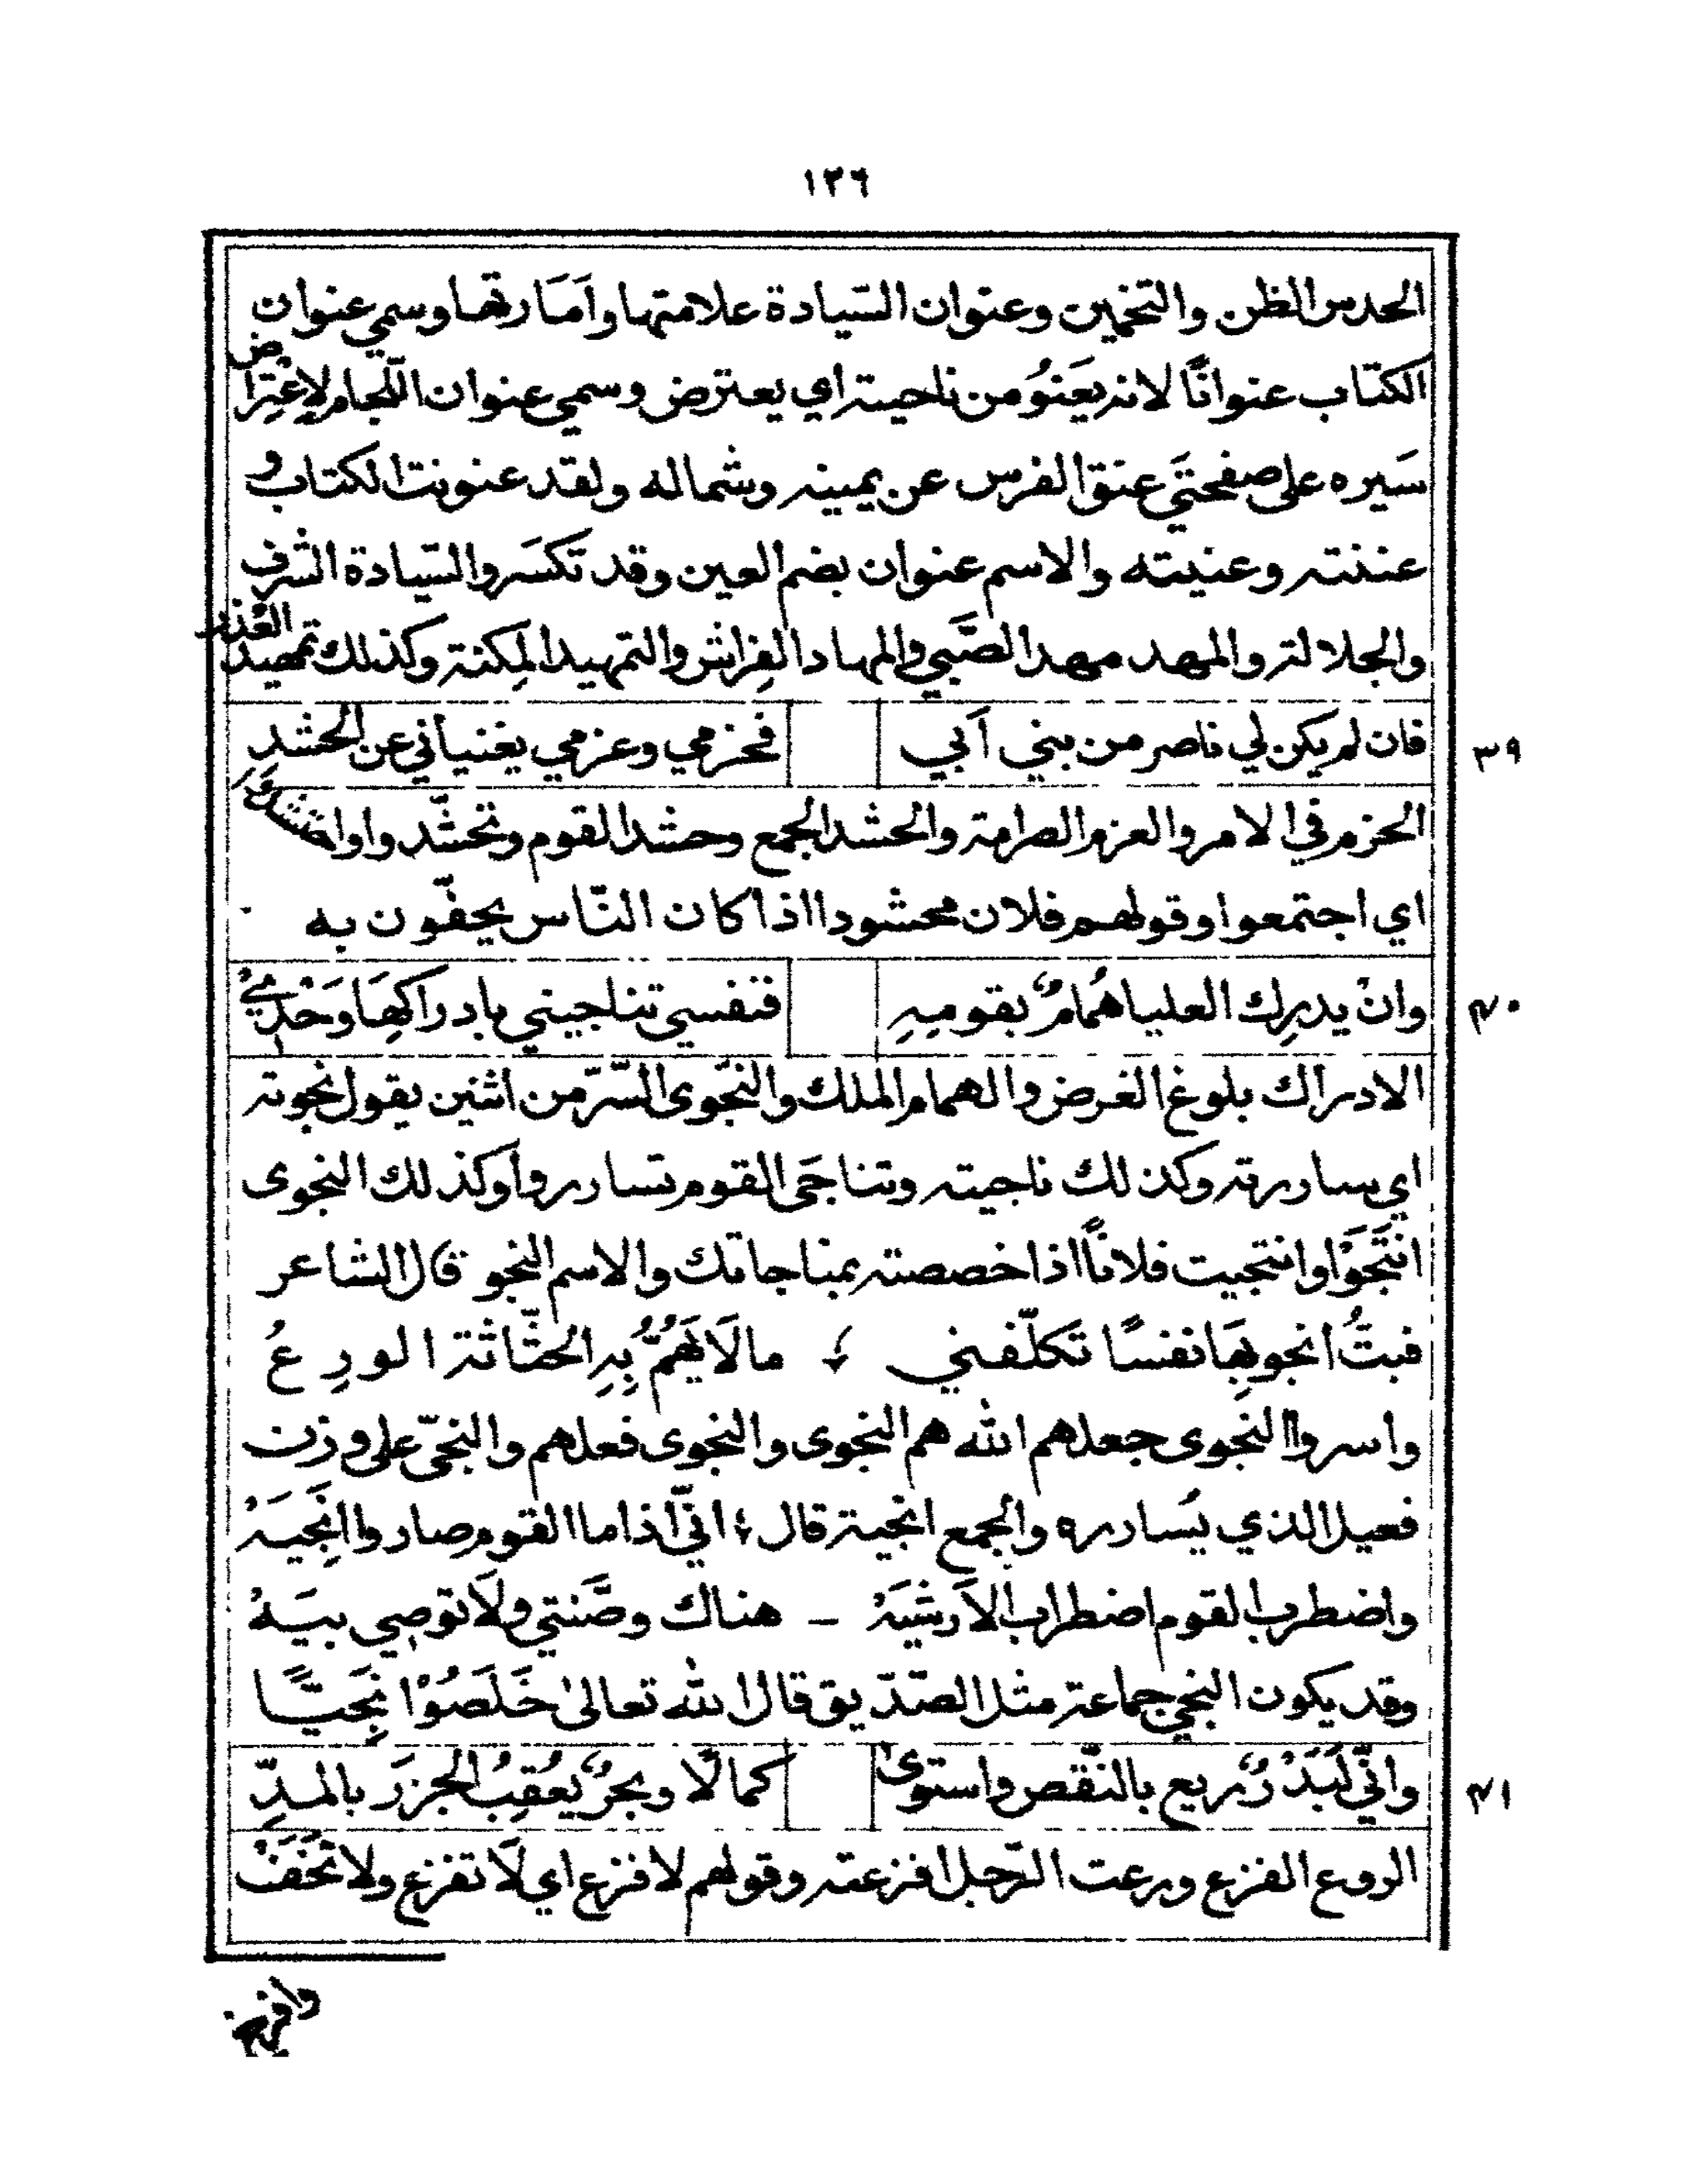 ١٣٦
الحدس الظن والتخمين وعنوان السّيادة علامتها وأمَارتها وسمي عنوان
الكتاب عنوانًا لانه يَعَنوُ من ناحيته اي يعترض وسمي عنوان اللّجام لإعْتِراض
سَيره على صفحتَي عنق الفرس عن يمينه وشماله ولقد عنونت الكتاب و
عننته وعنيته والاسم عنوان بضم العين وقد تكسَر والسّيادة الشرف
والجلالة والمهد مهد الصَّبي والمهاد الفِراش والتمهيد المِكنة وكذلك تمهيد العُذر
فان لم يكن لي ناصر من بني أبي فحزمي وعزمي يغنياني عن الحشدِ
٣٩
الحزم في الامر والعزم الصرامة والحشد الجمع وحشد القوم وتحشّد واواحتشدَ
اي اجتمعوا وقولهم فلان محشودا اذا كان النّاس يحفّون به
وانْ يدرِك العليا هُمامٌ بقومِهِ فنفسي تناجيني بادراكِهَا وَحْدِيْ
٤٠
الادراك بلوغ الغرض والهمام الملك والنّجوى السّرّ من اثنين يقول نجوته
اي ساررته وكذلك ناجيته وتناجَى القوم تساررواً وكذلك النجوى
انتَجَوْا وانتجيت فلاناً اذا خصصته بمناجاتك والاسم النجو قال الشاعر
فبتُّ انجو بِهَا نفسًا تكلّفني مالَا يَهُمُّ بِهِ الحثّاثة الورِعُ
واسروا النجوى جعلهم الله هم النجوى والنجوى فعلهم والنجيّ على وزن
فعيل الذي يُساررہ والجمع انجية قال؛ انّي اذا ما القوم صاروا انِجيَهْ
واضطرب القوم اضطراب الاَرشيَهْ ـ هناك وصَّنتي ولَا توصِي بيَهْ
وقد يكون النجي جماعة مثل الصّدّيق قال الله تعالىٰ خَلَصُوْا نِجَيًّا
وانّي لَبَدْرٌ ريع بالنّقص واستوىٰ كمالًا وبحرٌ يُعقِبُ الجزرَ بالمدِّ
٤١
الروع الفزع ورعت الرّجل افزعته وقولهم لا فزع اي لَا تفزع ولا تخَفَفْ